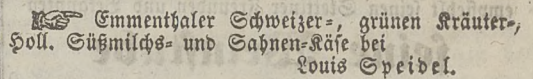 ☞ Emmenthaler Schweizer-, grünen Kräuter-,
Holl. Süßmilchs- und Sahnen-Käse bei
Louis Speidel.